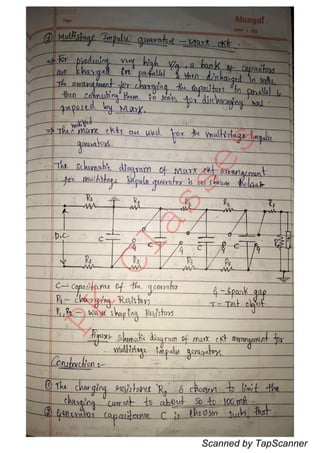 Page :
Mangal
Date : / /20
Multistage Impulse generators - Marx ckt.
→ For producing very high V/g, a bank of capacitors
are charged in parallel & then discharged in series
The arrangement for charging the capacitors in parallel &
then connecting them in series for discharging was
proposed by Marx.
modified
→ The Marx ckts are used for the multistage impulse
generators.
The schematic diagram of Marx ckt arrangement
for multistage impulse generator is as shown below
Rs Rs Rs Rs R1
D.C. C G C G C G C G R2
Rs Rs Rs Rs
C - capacitance of the generator G - Spark gap
Rs - charging Resistors T = Test object
R1, R2 - wave shaping Resistors
Classes
figure: Schematic diagram of Marx ckt arrangement for
multistage Impulse generator
Construction :-
① The charging resistance Rs is chosen to limit the
charging current to about 50 to 100 mA.
② Generator capacitance C is chosen such that
Scanned by TapScanner